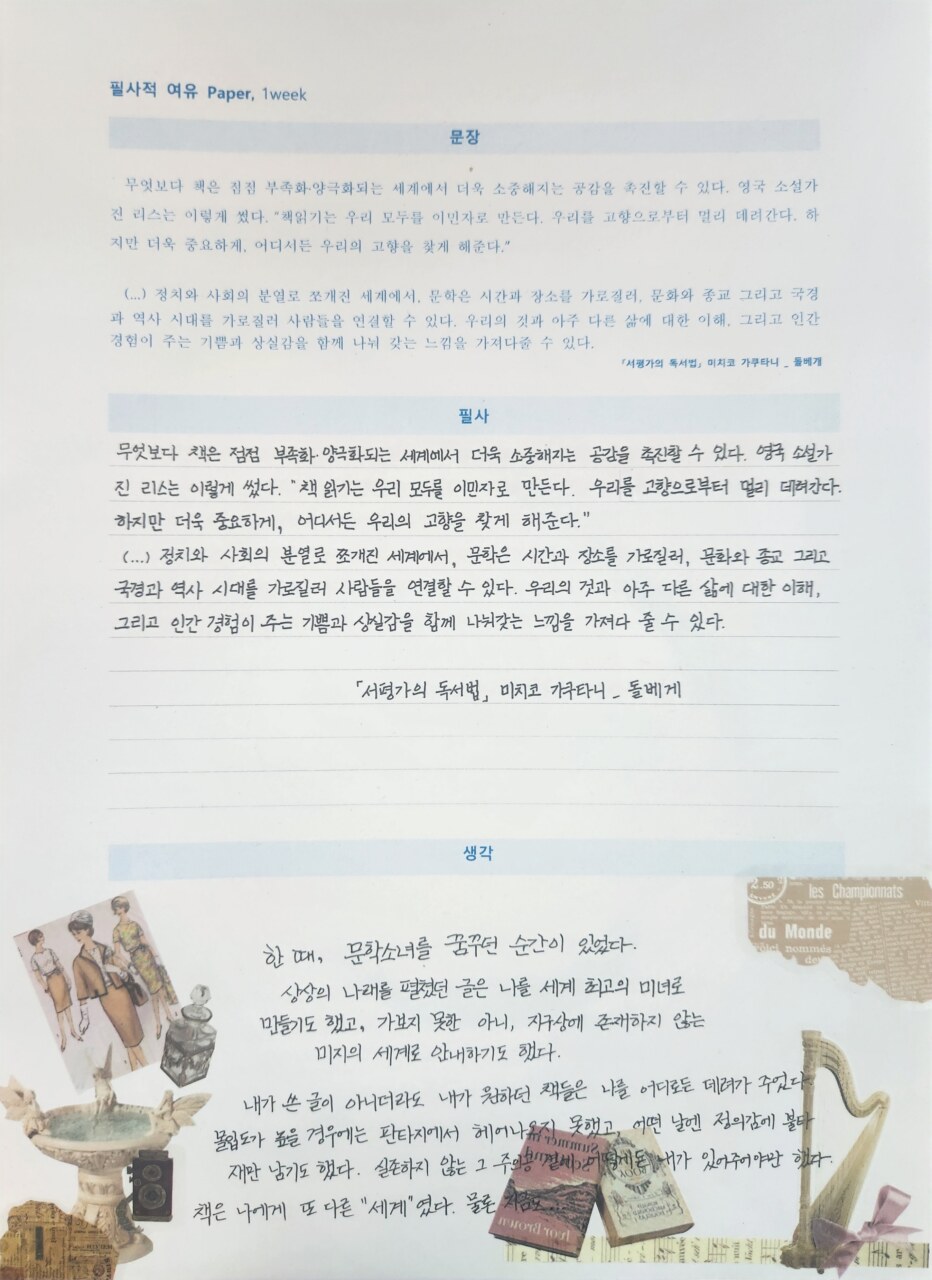 필사적 여유 Paper, 1week
문장
무엇보다 책은 점점 부족화·양극화되는 세계에서 더욱 소중해지는 공감을 촉진할 수 있다. 영국 소설가
진 리스는 이렇게 썼다. "책읽기는 우리 모두를 이민자로 만든다. 우리를 고향으로부터 멀리 데려간다. 하
지만 더욱 중요하게, 어디서든 우리의 고향을 찾게 해준다."
(...) 정치와 사회의 분열로 쪼개진 세계에서, 문학은 시간과 장소를 가로질러, 문화와 종교 그리고 국경
과 역사 시대를 가로질러 사람들을 연결할 수 있다. 우리의 것과 아주 다른 삶에 대한 이해, 그리고 인간
경험이 주는 기쁨과 상실감을 함께 나눠 갖는 느낌을 가져다줄 수 있다.
「서평가의 독서법」 미치코 가쿠타니 _ 돌베개
필사
무엇보다 책은 점점 부족화·양극화되는 세계에서 더욱 소중해지는 공감을 촉진할 수 있다. 영국 소설가
진 리스는 이렇게 썼다. "책 읽기는 우리 모두를 이민자로 만든다. 우리를 고향으로부터 멀리 데려간다.
하지만 더욱 중요하게, 어디서든 우리의 고향을 찾게 해준다."
(...) 정치와 사회의 분열로 쪼개진 세계에서, 문학은 시간과 장소를 가로질러, 문화와 종교 그리고
국경과 역사 시대를 가로질러 사람들을 연결할 수 있다. 우리의 것과 아주 다른 삶에 대한 이해,
그리고 인간 경험이 주는 기쁨과 상실감을 함께 나눠갖는 느낌을 가져다 줄 수 있다.
「서평가의 독서법」 미치코 가쿠타니 _ 돌베게
생각
2.50
les Championnats
du Monde
nommés
한 때, 문학소녀를 꿈꾸던 순간이 있었다.
상상의 나래를 펼쳤던 글은 나를 세계 최고의 미녀로
만들기도 했고, 가보지 못한 아니, 지구상에 존재하지 않는
미지의 세계로 안내하기도 했다.
내가 쓴 글이 아니더라도 내가 원하던 책들은 나를 어디로든 데려가 주었다
몰입도가 높을 경우에는 판타지에서 헤어나오지 못했고, 어떤 날엔 정의감에 불타
재만 남기도 했다. 실존하지 않는 그 주인공 곁에 어떻게든 내가 있어주어야만 했다.
책은 나에게 또 다른 "세계"였다. 물론 지금도...